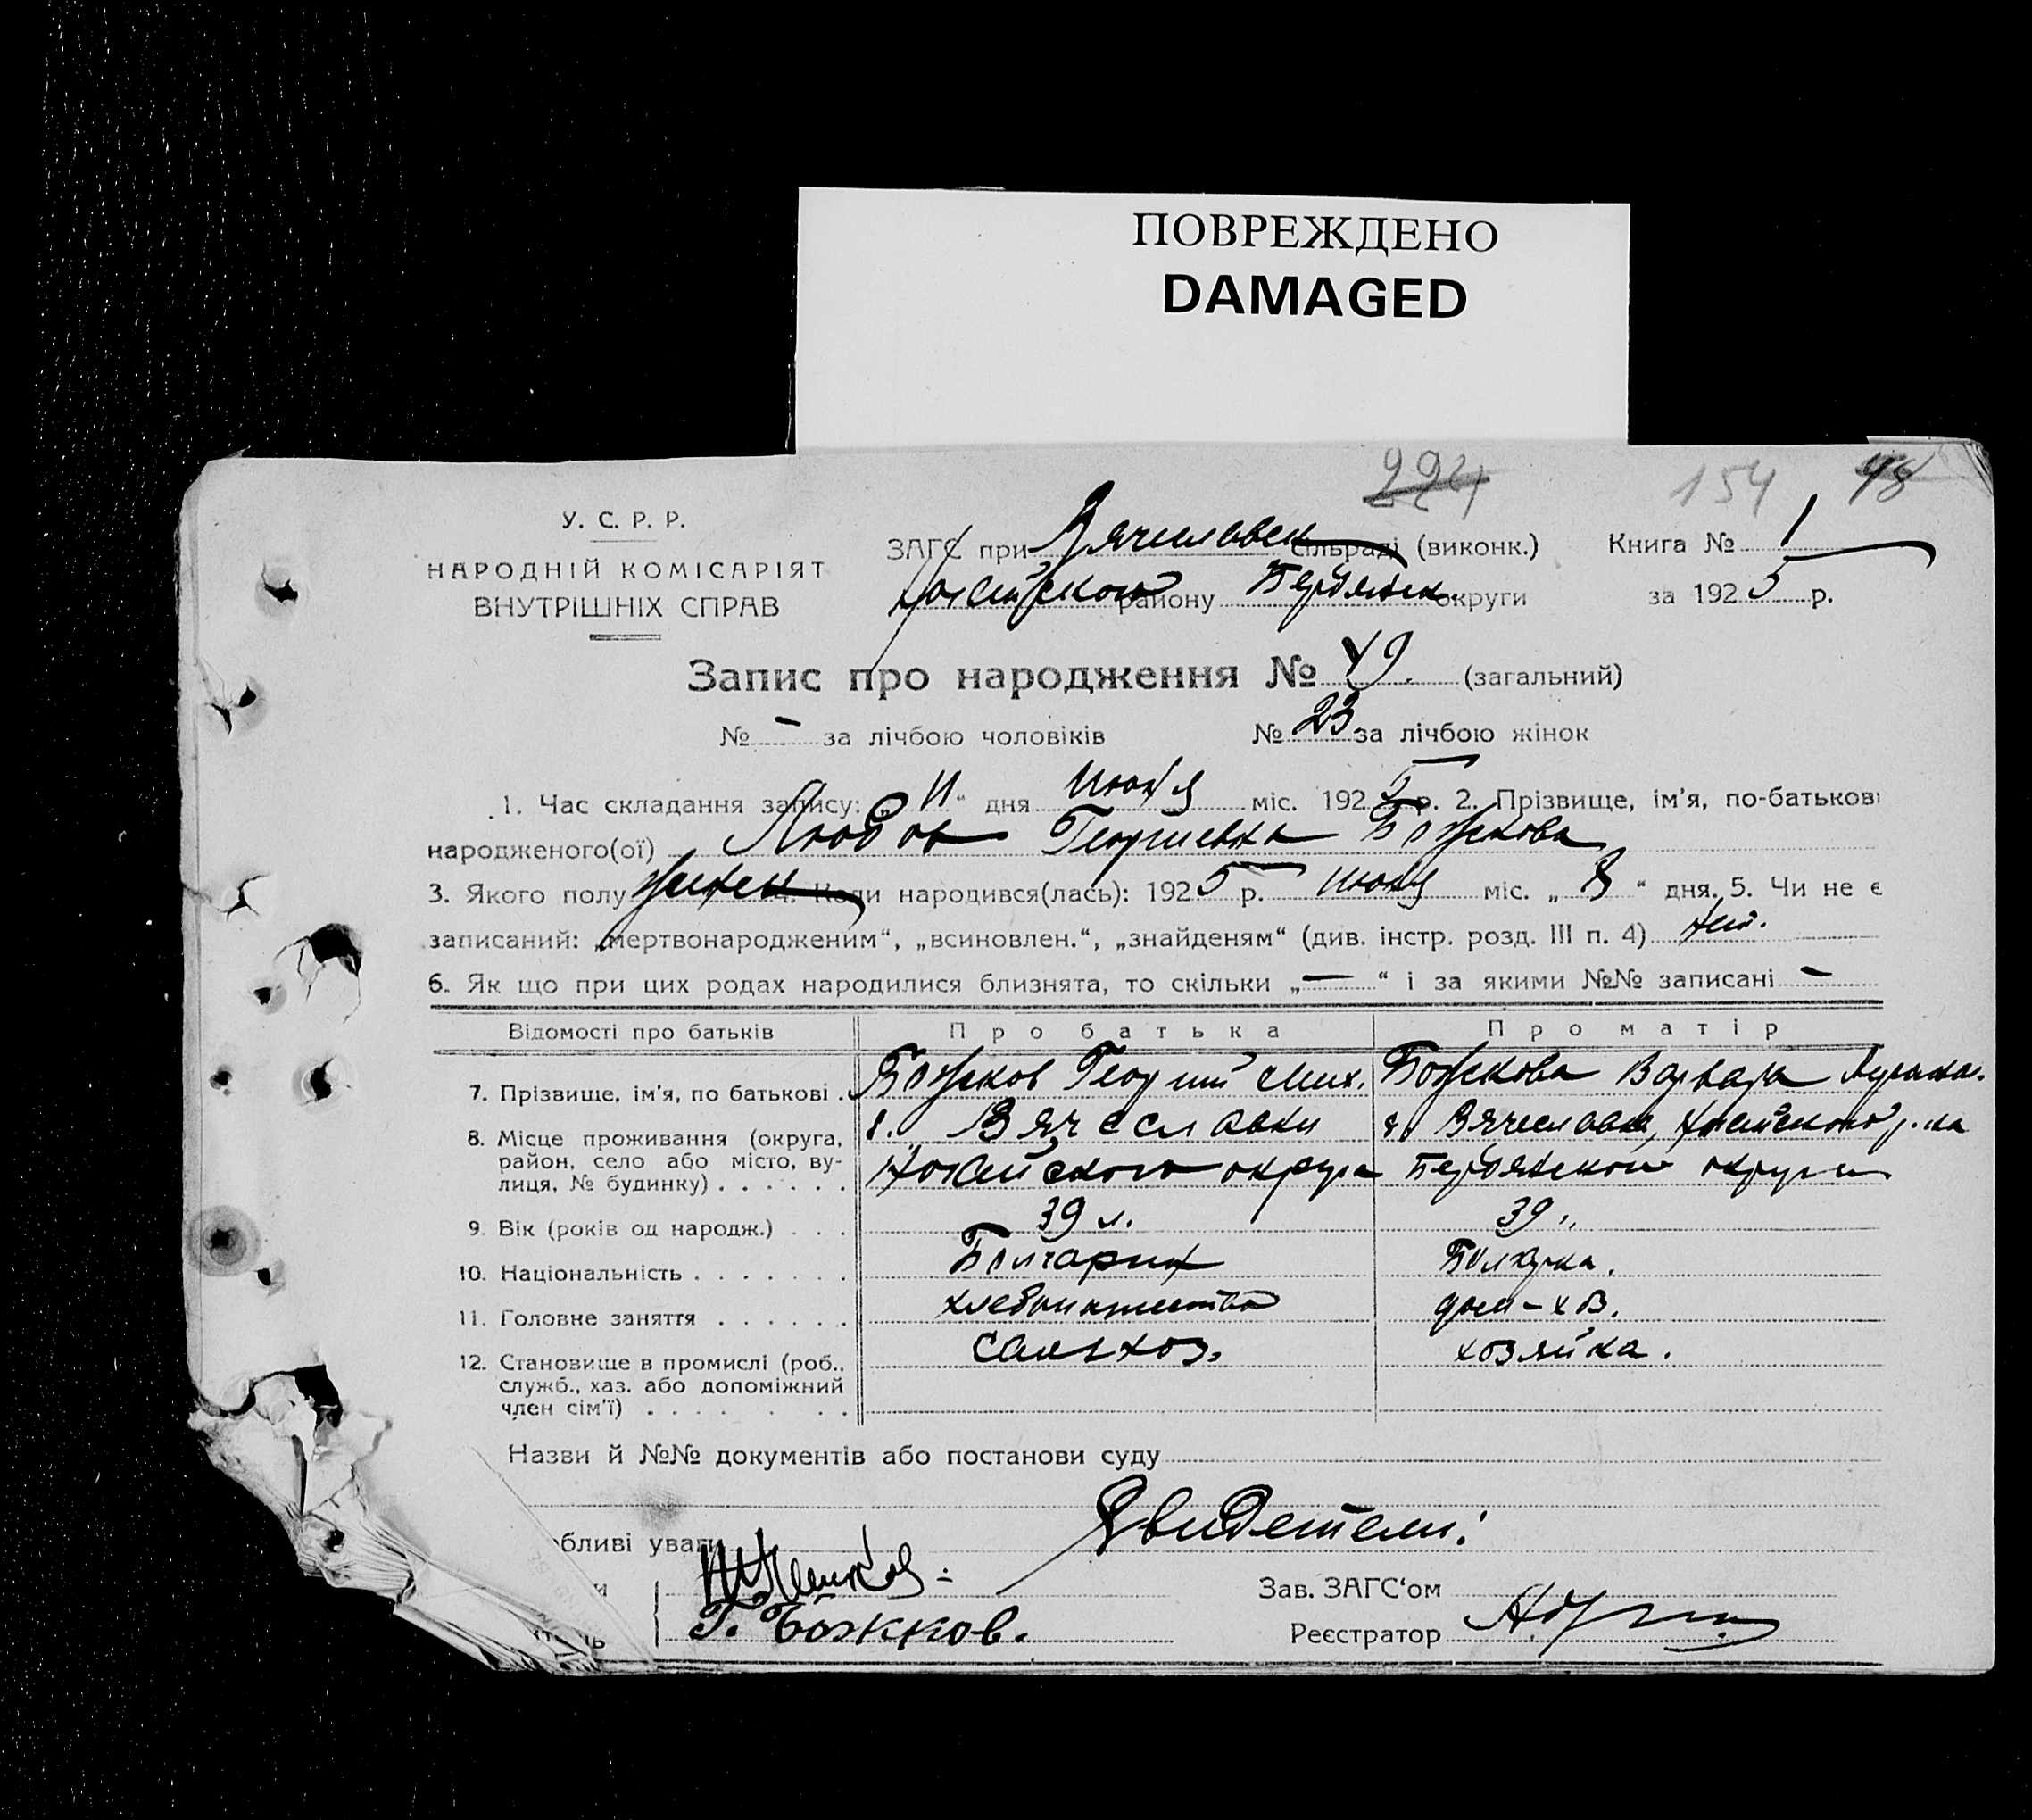 ПОВРЕЖДЕНО
DAMAGED
224 154 48
У. С. Р. Р.
НАРОДНІЙ КОМІСАРІЯТ
ВНУТРІШНІХ СПРАВ
ЗАГС при Вячеславск сільраді (виконк.) Книга № 1
Ногайского району Бердянск. округи за 1925 р.
Запис про народження № 49. (загальний)
№ - за лічбою чоловіків № 23 за лічбою жінок
1. Час складання запису: „11“ дня июля міс. 1925 р. 2. Прізвище, ім'я, по-батькові
народженого(ої) Любов Георгиевна Божкова
3. Якого полу женск 4. Коли народився(лась): 1925 р. июля міс. „8“ дня. 5. Чи не є
записаний: „мертвонародженим“, „всиновлен.“, „знайденям“ (див. інстр. розд. III п. 4) нет.
6. Як що при цих родах народилися близнята, то скільки „—“ і за якими №№ записані -
Відомості про батьків Про батька Про матір
7. Прізвище, ім'я, по батькові . Божков Георгий Мих. Божкова Варвара
8. Місце проживання (округа, район, село або місто, вулиця, № будинку) . . . . . . с. Вячеславки Ногайского округа с. Вячеславка, Ногайского р-на Бердянского округа
9. Вік (років од народж.) . . . 39 л. 39 "
10. Національність . . . . . . . Болгарин Болгарка.
11. Головне заняття . . . . . . хлебопашество дом-хоз.
12. Становище в промислі (роб., служб., хаз. або допоміжний член сім'ї) . . . . . . . сельхоз. хозяйка.
Назви й №№ документів або постанови суду
обливі уваги Свидетели:
Зав. ЗАГС'ом
Г. Божков. Реєстратор